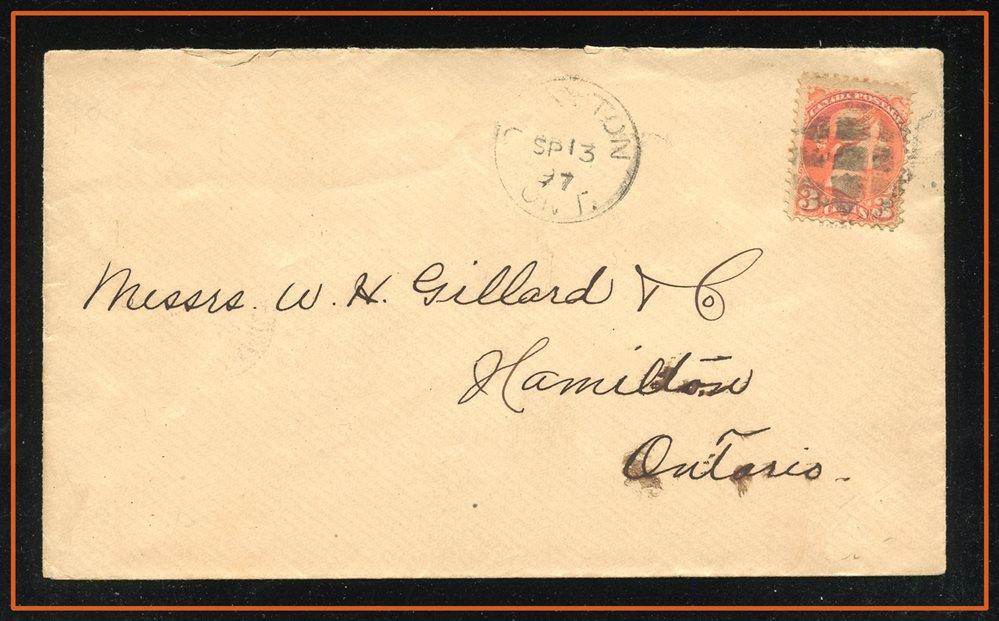 SP 13
97
ONT.
CANADA POSTAGE
3 CENTS 3
Messrs. W. H. Gillard & Co
Hamilton
Ontario.